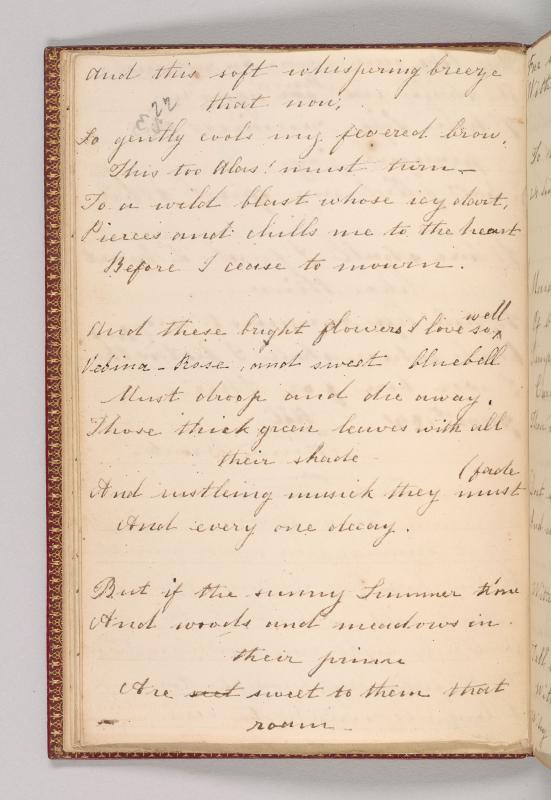 And this soft whispering breeze
that now,
So gently cools my fevered brow,
This too Alas! must turn—
To a wild blast whose icy dart,
Pierces and chills me to the heart
Before I cease to mourn.
And these bright flowers I love so, well
Verbina - Rose, and sweet bluebell
Must droop and die away.
Those thick green leaves with all
their shade
And rustleing musick they must (fade
And every one decay.
But if the sunny Summer time
And woods and meadows in
their prime
Are sweet to them that
roam